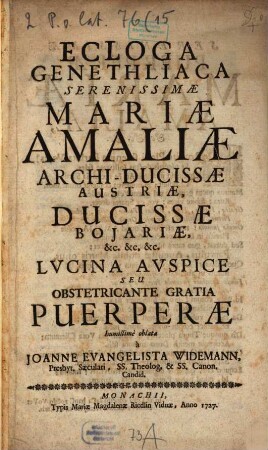 2 P. o Lat. 76 (15
ECLOGA
GENETHLIACA
SERENISSIMÆ
MARIÆ
AMALIÆ
ARCHI-DUCISSÆ
AUSTRIÆ,
DUCISSÆ
BOJARIÆ,
&c. &c. &c.
LVCINA AVSPICE
SEU
OBSTETRICANTE GRATIA
PUERPERÆ
humillimè oblata
à
JOANNE EVANGELISTA WIDEMANN,
Presbyt. Sæculari, SS. Theolog. & SS. Canon.
Candid.
MONACHII,
Typis Mariæ Magdalenæ Riedlin Viduæ, Anno 1727.
73A